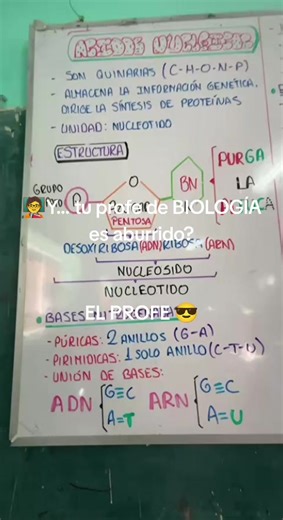 ACIDOS NUCLEICOS
- SON QUINARIAS (C-H-O-N-P)
- ALMACENA LA INFORMACIÓN GENÉTICA,
DIRIGE LA SÍNTESIS DE PROTEÍNAS
- UNIDAD: NUCLEOTIDO
ESTRUCTURA
GRUPO
O
BN
PURGA
LA
PENTOSA
🧑‍🏫Y... tu profe de BIOLOGÍA
es aburrido?
DESOXIRIBOSA(ADN)RIBOSA(ARN)
NUCLEOSIDO
NUCLEOTIDO
EL PROFE😎
• BASES
- PÚRICAS: 2 ANILLOS (G-A)
- PIRIMIDICAS: 1 SOLO ANILLO (C-T-U)
- UNIÓN DE BASES:
ADN { G≡C ARN { G≡C
A=T A=U